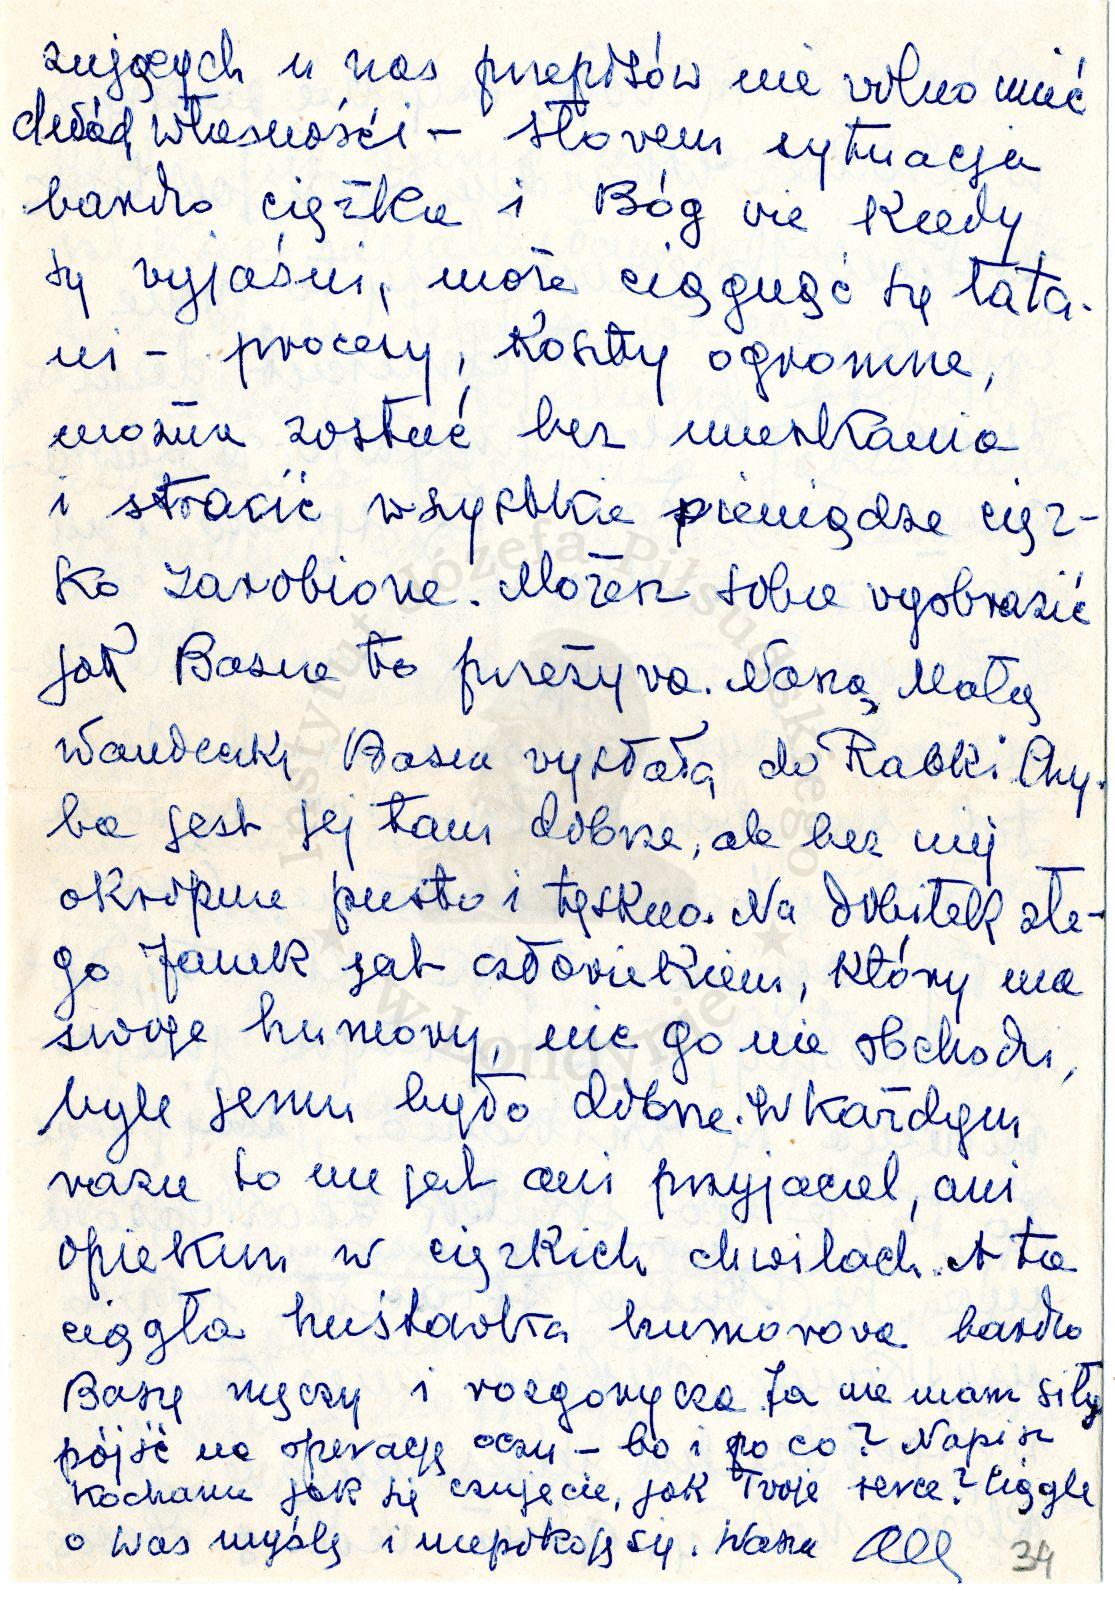 zujących u nas przepisów nie wolno mieć
dwóch własności – słowem sytuacja
bardzo ciężka i Bóg wie kiedy
się wyjaśni, może ciągnąć się lata-
mi – procesy, koszty ogromne,
można zostać bez mieszkania
i stracić wszystkie pieniądze cięż-
ko zarobione. Możesz sobie wyobrazić
jak Basia to przeżywa. Naszą Małą
Wandeczkę Basia wysłała do Rabki. Chy-
ba jest jej tam dobrze, ale bez niej
okropnie pusto i tęskno. Na dobitek złe-
go Janek jest człowiekiem, który ma
swoje humory, nic go nie obchodzi,
byle jemu było dobrze. W każdym
razie to nie jest ani przyjaciel, ani
opiekun w ciężkich chwilach. A ta
ciągła huśtawka humorowa bardzo
Basię męczy i rozgorycza. Ja nie mam siły
pójść na operację oczu – bo i po co? Napisz
kochanie jak się czujecie, jak Twoje serce? Ciągle
o Was myślę i niepokoję się. Wasza
34
Instytut Józefa Piłsudskiego
★ w Londynie ★